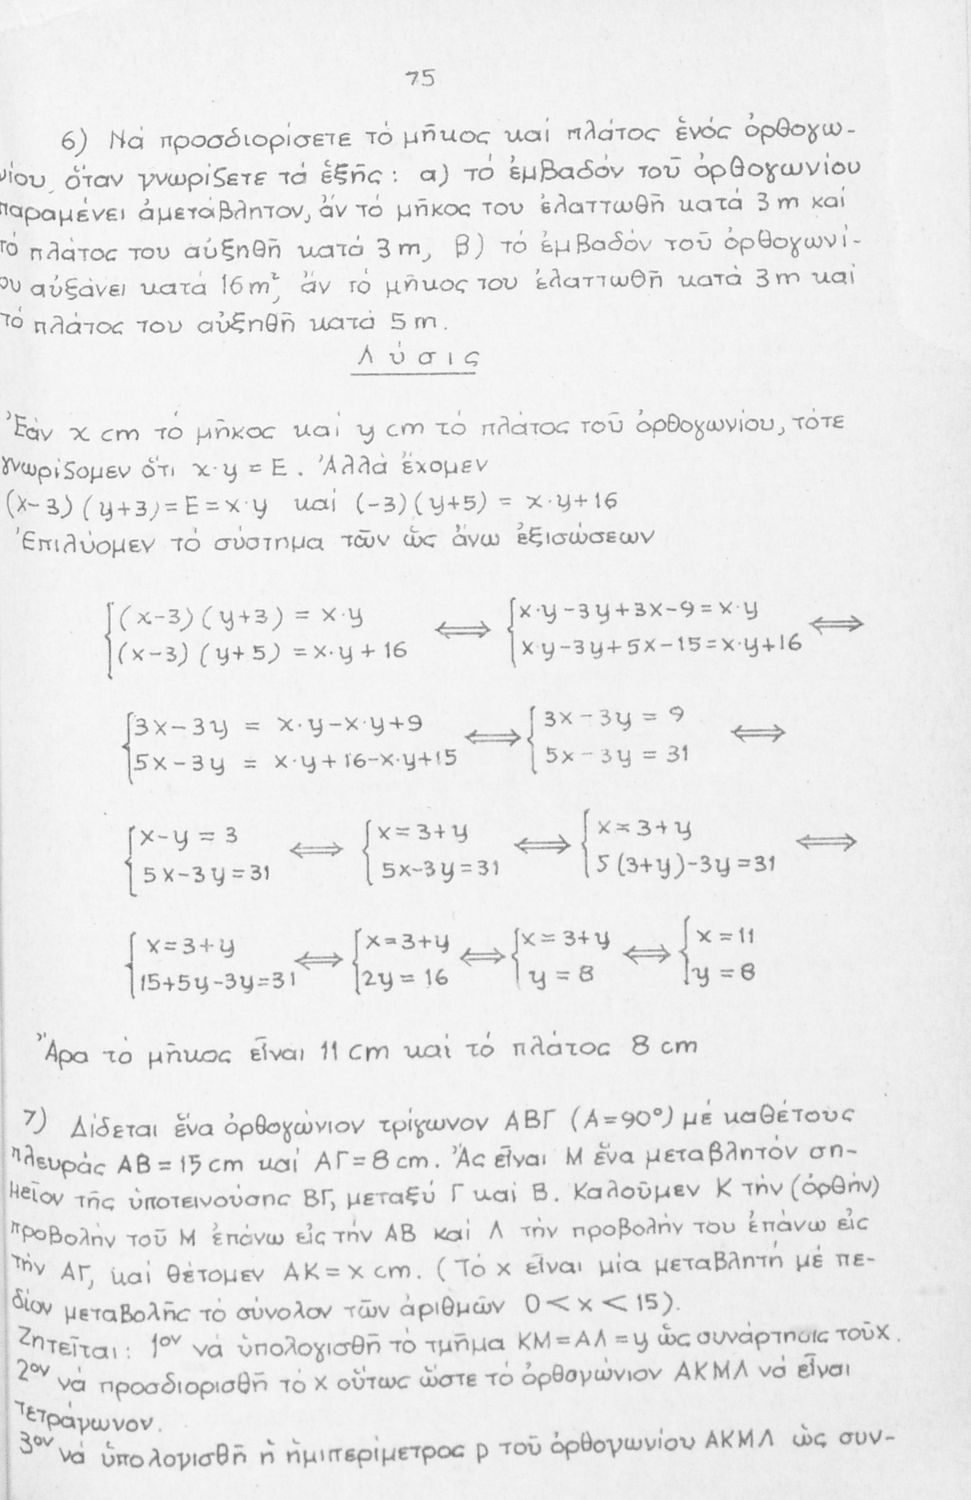 75
6) Νά προσδιορίσετε τό μῆκος καί πλάτος ἑνός ὀρθογω-
νίου, ὅταν γνωρίζετε τά ἑξῆς: α) τό ἐμβαδόν τοῦ ὀρθογωνίου
παραμένει ἀμετάβλητον, ἄν τό μῆκος του ἐλαττωθῆ κατά 3 m καί
τό πλάτος του αὐξηθῆ κατά 3 m, β) τό ἐμβαδόν τοῦ ὀρθογωνί-
ου αὐξάνει κατά 16 m², ἄν τό μῆκος του ἐλαττωθῆ κατά 3 m καί
τό πλάτος του αὐξηθῆ κατά 5 m.
Λύσις
Ἐάν x cm τό μῆκος καί y cm τό πλάτος τοῦ ὀρθογωνίου, τότε
γνωρίζομεν ὅτι x·y = E. Ἀλλά ἔχομεν
(x-3)(y+3)=E=x·y καί (-3)(y+5) = x·y+16
Ἐπιλύομεν τό σύστημα τῶν ὡς ἄνω ἐξισώσεων
(x-3)(y+3) = x·y ⟺ x·y-3y+3x-9=x·y ⟺
(x-3)(y+5) = x·y+16 xy-3y+5x-15=x·y+16
3x-3y = x·y-x·y+9 ⟺ 3x-3y = 9 ⟺
5x-3y = x·y+16-x·y+15 5x-3y = 31
x-y = 3 ⟺ x=3+y ⟺ x=3+y ⟺
5x-3y=31 5x-3y=31 5(3+y)-3y=31
x=3+y ⟺ x=3+y ⟺ x=3+y ⟺ x=11
15+5y-3y=31 2y=16 y=8 y=8
Ἄρα τό μῆκος εἶναι 11 cm καί τό πλάτος 8 cm
7) Δίδεται ἕνα ὀρθογώνιον τρίγωνον ΑΒΓ (Α=90°) μέ καθέτους
πλευράς ΑΒ=15cm καί ΑΓ=8cm. Ἄς εἶναι Μ ἕνα μεταβλητόν ση-
μεῖον τῆς ὑποτεινούσης ΒΓ, μεταξύ Γ καί Β. Καλοῦμεν Κ τήν (ὀρθήν)
προβολήν τοῦ Μ ἐπάνω εἰς τήν ΑΒ καί Λ τήν προβολήν του ἐπάνω εἰς
τήν ΑΓ, καί θέτομεν ΑΚ=x cm. (Τό x εἶναι μία μεταβλητή μέ πε-
δίον μεταβολῆς τό σύνολον τῶν ἀριθμῶν 0<x<15).
Ζητεῖται: 1ον νά ὑπολογισθῆ τό τμῆμα ΚΜ=ΑΛ=y ὡς συνάρτησις τοῦ x.
2ον νά προσδιορισθῆ τό x οὕτως ὥστε τό ὀρθογώνιον ΑΚΜΛ νά εἶναι
τετράγωνον.
3ον νά ὑπολογισθῆ ἡ ἡμιπερίμετρος p τοῦ ὀρθογωνίου ΑΚΜΛ ὡς συν-